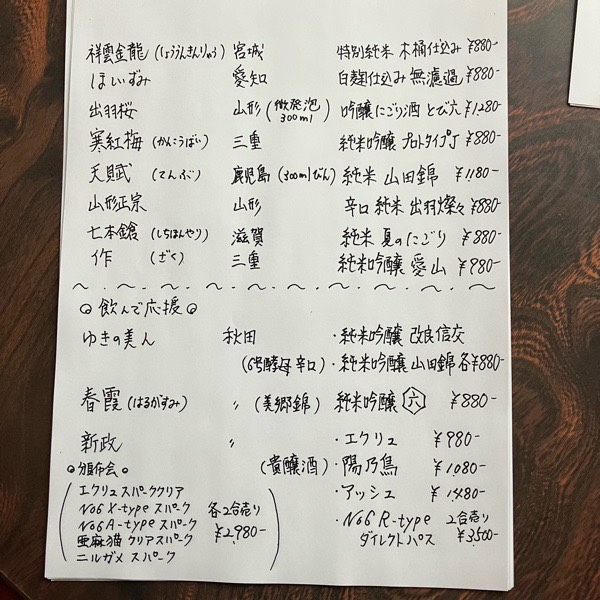 祥雲金龍(しょううんきんりゅう) 宮城 特別純米 木桶仕込み ¥880-
ほいずみ 愛知 白麹仕込み 無濾過 ¥880-
出羽桜 山形(微発泡 300ml) 吟醸にごり酒 とび六 ¥1,280-
寒紅梅(かんこうばい) 三重 純米吟醸 プロトタイプJ ¥880-
天賦(てんぶ) 鹿児島(300mlびん) 純米 山田錦 ¥1,180-
山形正宗 山形 辛口 純米 出羽燦々 ¥880-
七本鎗(しちほんやり) 滋賀 純米 夏のにごり ¥880-
作(ざく) 三重 純米吟醸 愛山 ¥980-
飲んで応援
ゆきの美人 秋田 ・純米吟醸 改良信交
(6号酵母 辛口)・純米吟醸 山田錦 各¥880-
春霞(はるがすみ) 〃 (美郷錦) 純米吟醸 六 ¥880-
新政 〃 ・エクリュ ¥980-
頒布会 (貴醸酒)・陽乃鳥 ¥1,080-
エクリュスパーククリア ・アッシュ ¥1,480-
No6 X-type スパーク 各2合売り ・No6 R-type 2合売り
No6 A-type スパーク ¥2,980- ダイレクトパス ¥3,500-
亜麻猫 クリアスパーク
ニルガメ スパーク